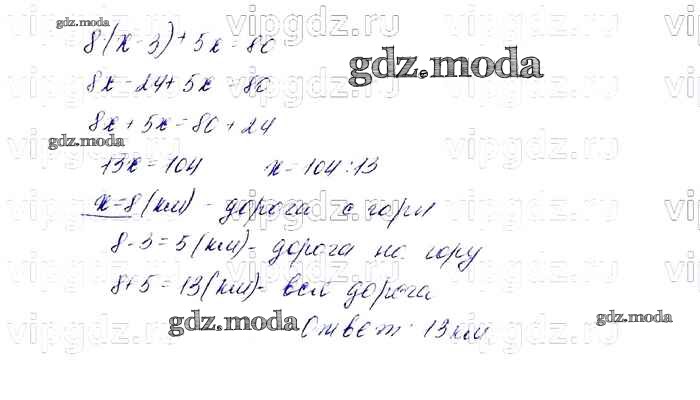 gdz.moda
8·(x-3)+5x=80
gdz.moda
8x-24+5x=80
8x+5x=80+24
gdz.moda
13x=104 x=104:13
x=8(км) - дорога с горы
8-3=5(км) - дорога на гору
8+5=13(км) - вся дорога
gdz.moda
Ответ: 13км
gdz.moda
vipgdz.ru vipgdz.ru vipgdz.ru